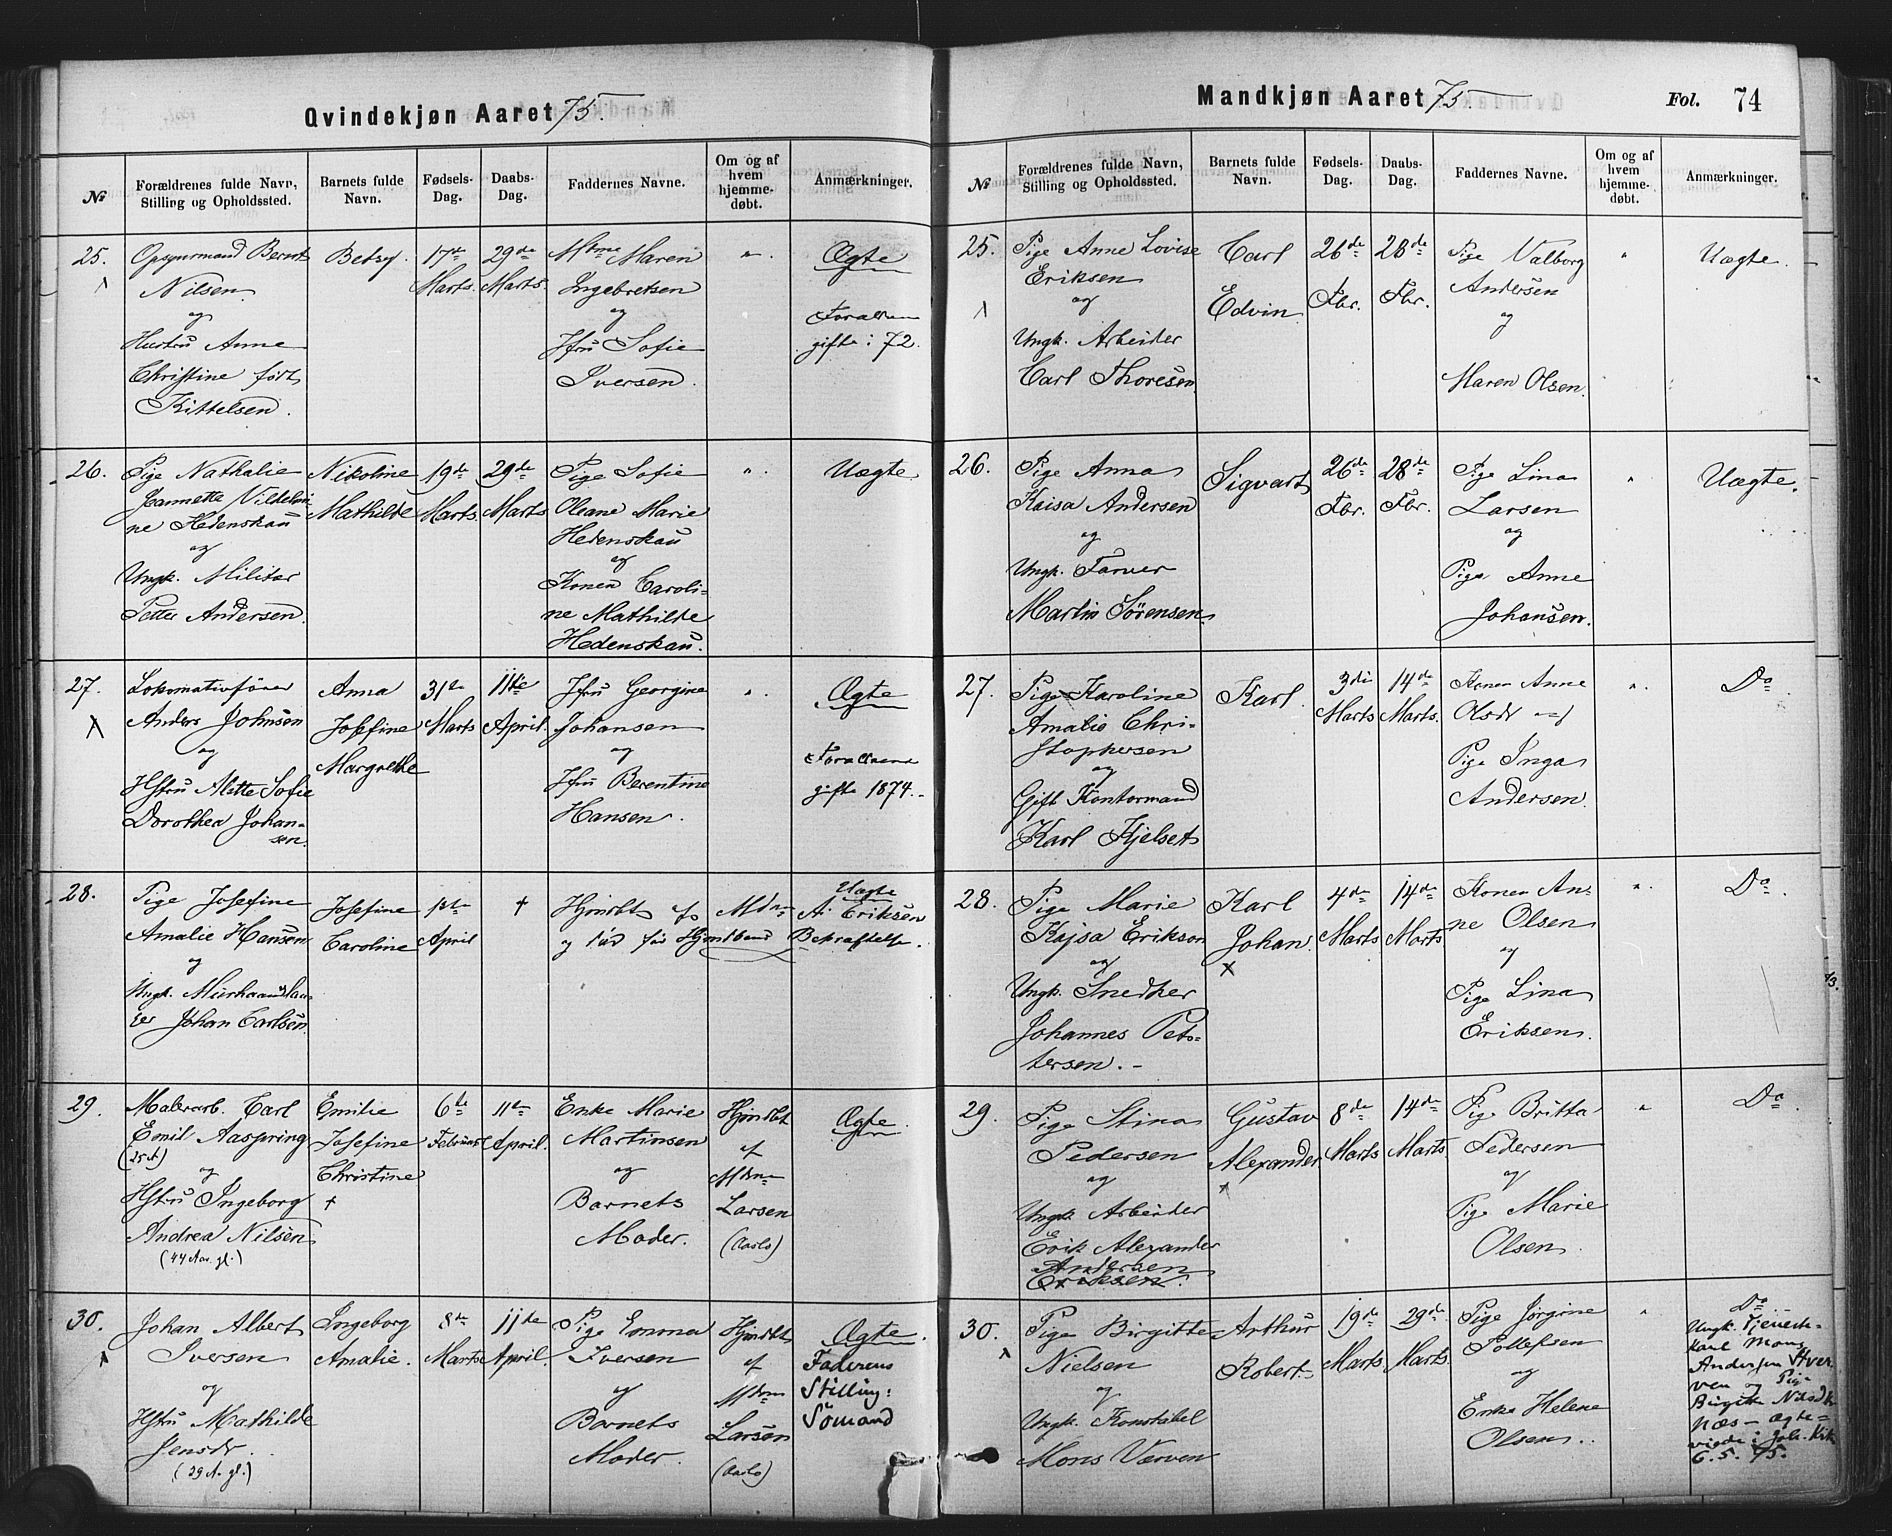 Qvindekjøn Aaret 75.
№
Forældrenes fulde Navn, Stilling og Opholdssted.
Barnets fulde Navn.
Fødsels-Dag.
Daabs-Dag.
Faddernes Navne.
Om og af hvem hjemme-døbt.
Anmærkninger.
25.
Opsynsmand Bernt
Nilsen
og
Hustru Anne
Christine født
Kittelsen.
Betsy.
17de
Marts.
29de
Marts.
Maren
Ingebretsen
og
Jfru Sofie
Iversen.
"
Ægte
Forældrene
gifte i 72.
26.
Pige Nathalie
Jeannette Vilhelmi-
ne Hedenskau
og
Ungk. Militær
Petter Andersen.
Nikoline
Mathilde
19de
Marts.
29de
Marts
Pige Sofie
Oleane Marie
Hedenskau
og
Konen Caroli-
ne Mathilde
Hedenskau.
"
Uægte
27.
Lokomativfører
Anders Johnsen
og
Hstru Alette Sofie
Dorothea Johan-
sen.
Anna
Josefine
Margrethe
31te
Marts
11te
April.
Jfru Georgine
Johansen
og
Jfru Berentine
Hansen.
"
Ægte
Forældrene
gifte 1874.
28.
Pige Josefine
Amalie Hansen
og
Ungk.
Johan Carlsen.
Josefine
Caroline
1ste
April
†
Hjmdbt af Mdm A. Eriksen
Uægte
Bekræftelse.
29.
Malerarb. Carl
Emil Aaspring
(25 A)
og
Hstru Ingeborg
Andrea Nilsen
(44 Aar gl.)
Emilie
Josefine
Christine
†
6te
Februar
11te
April.
Enke Marie
Martinsen
og
Barnets
Moder.
Hjmdbt
af
Mdm
Larsen
(Oslo)
Ægte.
30.
Johan Albert
Iversen
og
Hstru Mathilde
Jensdr.
(29 A. gl.)
Ingeborg
Amalie.
8de
Marts
11te
April.
Pige Emma
Iversen
og
Barnets
Moder.
Hjmdbt
af
Mdm
Larsen
(Oslo)
Ægte.
Faderens
Stilling:
Sømand
Mandkjøn Aaret 75.
Fol. 74
№
Forældrenes fulde Navn, Stilling og Opholdssted.
Barnets fulde Navn.
Fødsels-Dag.
Daabs-Dag.
Faddernes Navne.
Om og af hvem hjemme-døbt.
Anmærkninger.
25.
Pige Anne Lovise
Eriksen
og
Ungk. Arbeider
Carl Thoresen
Carl
Edvin
26de
Fbr.
28de
Fbr.
Pige Valborg
Andersen
og
Maren Olsen.
"
Uægte.
26.
Pige Anna
Kaisa Andersen
og
Ungk. Farver
Martin Sørensen.
Sigvart
26de
Fbr.
28de
Fbr.
Pige Lina
Larsen
og
Pige Anne
Johansen.
"
Uægte.
27.
Pige Karoline
Amalie Chri-
stophersen
og
Gift Kontormand
Karl Kjelset
Karl.
3die
Marts
14de
Marts.
Konen Anne
Olsdr og
Pige Inga
Andersen.
"
Do
28.
Pige Marie
Kajsa Erikson
og
Ungk. Snedker
Johannes Pet-
tersen.
Karl
Johan.
x
4de
Marts
14de
Marts
Konen An-
ne Olsen
og
Pige Lina
Eriksen.
"
Do
29.
Pige Stina
Pedersen
og
Ungk. Arbeider
Erik Alexander
Andersen
Eriksen.
Gustav
Alexander
x
8de
Marts
14de
Marts.
Pige Britta
Pedersen
og
Pige Marie
Olsen.
"
Do
30.
Pige Birgitte
Nielsen
og
Ungk. Konstabel
Mons Værven
Arthur
Robert
19de
Marts
29de
Marts.
Pige Jørgine
Tollefsen
og
Enke Helene
Olsen.
"
Do
Ungk. Tjeneste-
karl Mons
Andersen Hver-
ven og Pige
Birgitte Nilsdr
Næs - ægte-
viede i Joh. Kik
6. 5. 75.